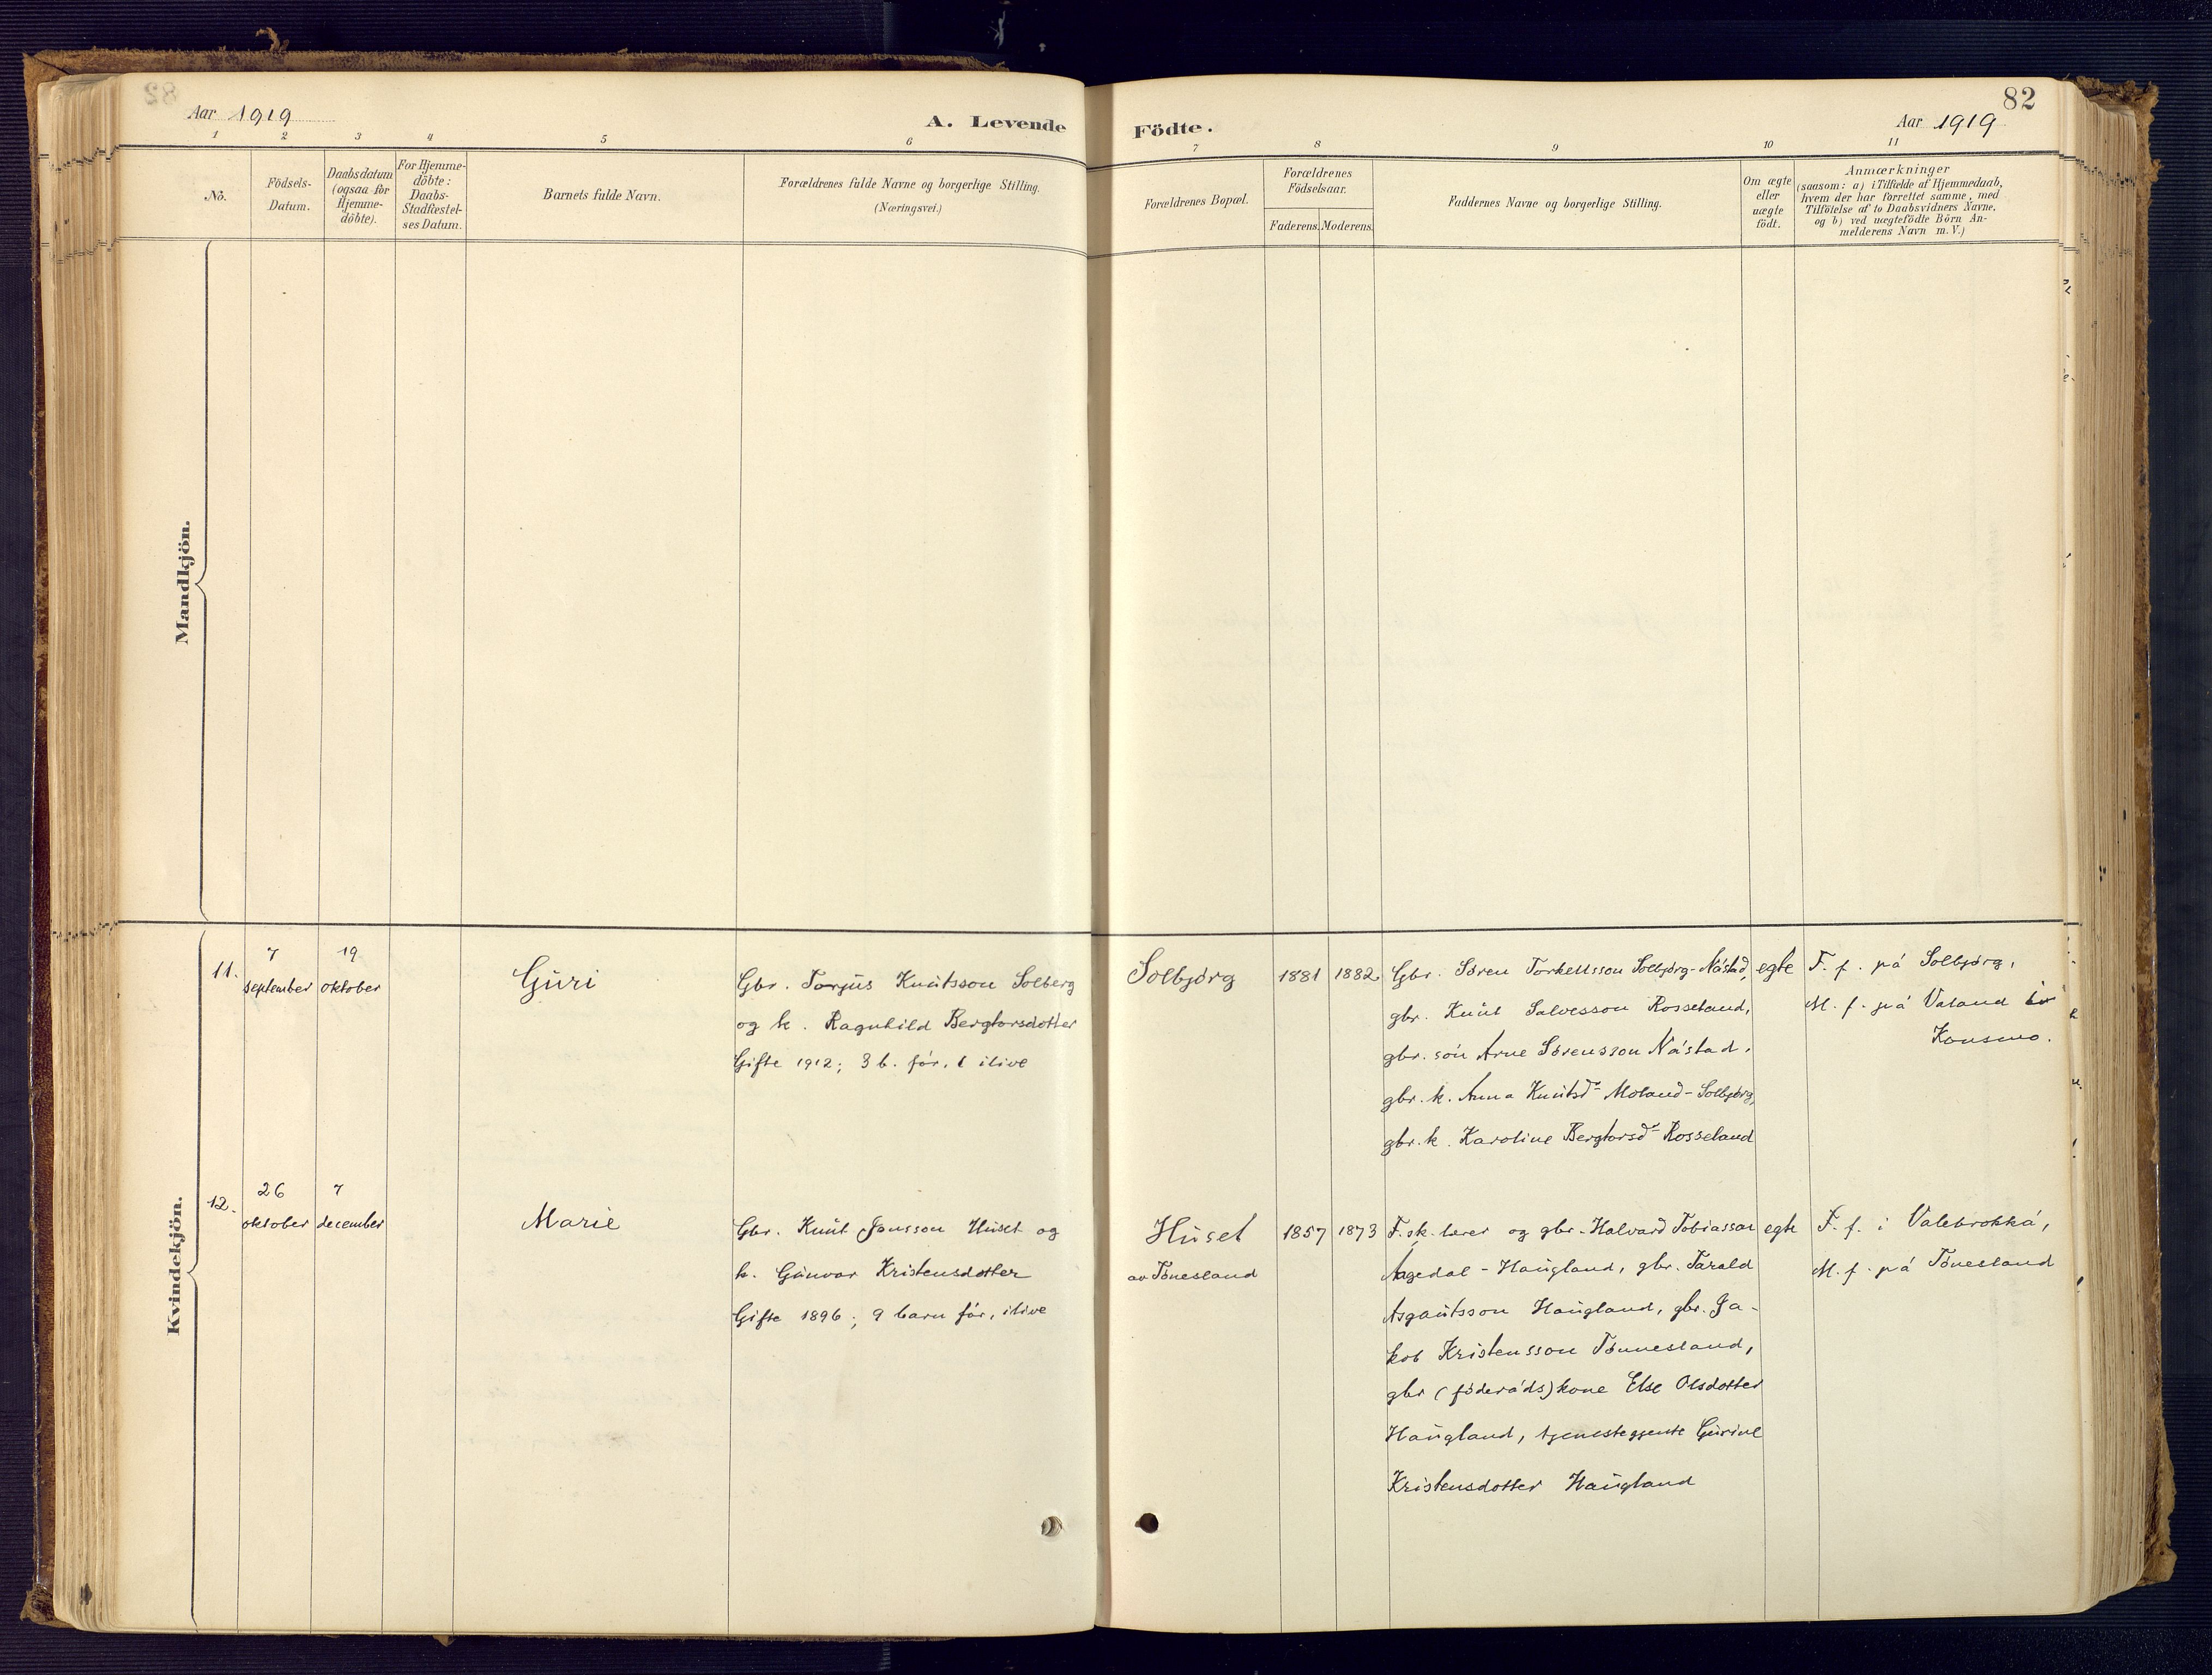 82
Aar 1919
A. Levende
Födte.
Aar 1919
1 2 3 4 5 6
7 8 9 10 11
No.
Födsels-
Datum.
Daabsdatum
(ogsaa for
Hjemme-
döbte).
For Hjemme-
döbte:
Daabs-
Stadfæstel-
ses Datum.
Barnets fulde Navn.
Forældrenes fulde Navne og borgerlige Stilling.
(Næringsvei.)
Forældrenes Bopæl.
Forældrenes
Födselsaar.
Faderens. Moderens.
Faddernes Navne og borgerlige Stilling.
Om ægte
eller
uægte
födt.
Anmærkninger
(saasom: a) i Tilfælde af Hjemmedaab,
hvem der har forrettet samme, med
Tilföielse af to Daabsvidners Navne.
og b) ved uægtefödte Börn An-
melderens Navn m. V.)
Mandkjön.
Kvindekjön.
11.
7
september
19
oktober
Guri
Gbr. Torjus Knutsson Solberg
og k. Ragnhild Bergtorsdotter
Gifte 1912; 3 b. för, 1 ilive
Solbjørg
1881
1882
Gbr. Søren Torkellsson Solbjørg-Nåstad,
gbr. Knut Salvesson Rosseland,
gbr. son Arne Sørensson Nåstad,
gbr. k. Anna Knutsdr Moland-Solbjørg,
gbr. k. Karoline Bergtorsdr Rosseland
egte
F. f. på Solbjørg,
M. f. på Valand i
Konsmo.
12.
26
oktober
7
december
Marie
Gbr. Knut Jonsson Huset og
k. Gunvor Kristensdotter
Gifte 1896; 9 barn før, ilive
Huset
av Tønesland
1857
1873
F. sk. lærer og gbr. Halvard Tobiasson
Aagedal - Haugland, gbr. Tarald
Asgautsson Haugland, gbr. Ja-
kob Kristensson Tønnesland,
gbr (føderåds) kone Else Olsdotter
Haugland, tjenestegjente Gurine
Kristensdotter Haugland
egte
F. f. i Valebrokkå,
M. f. på Tønesland